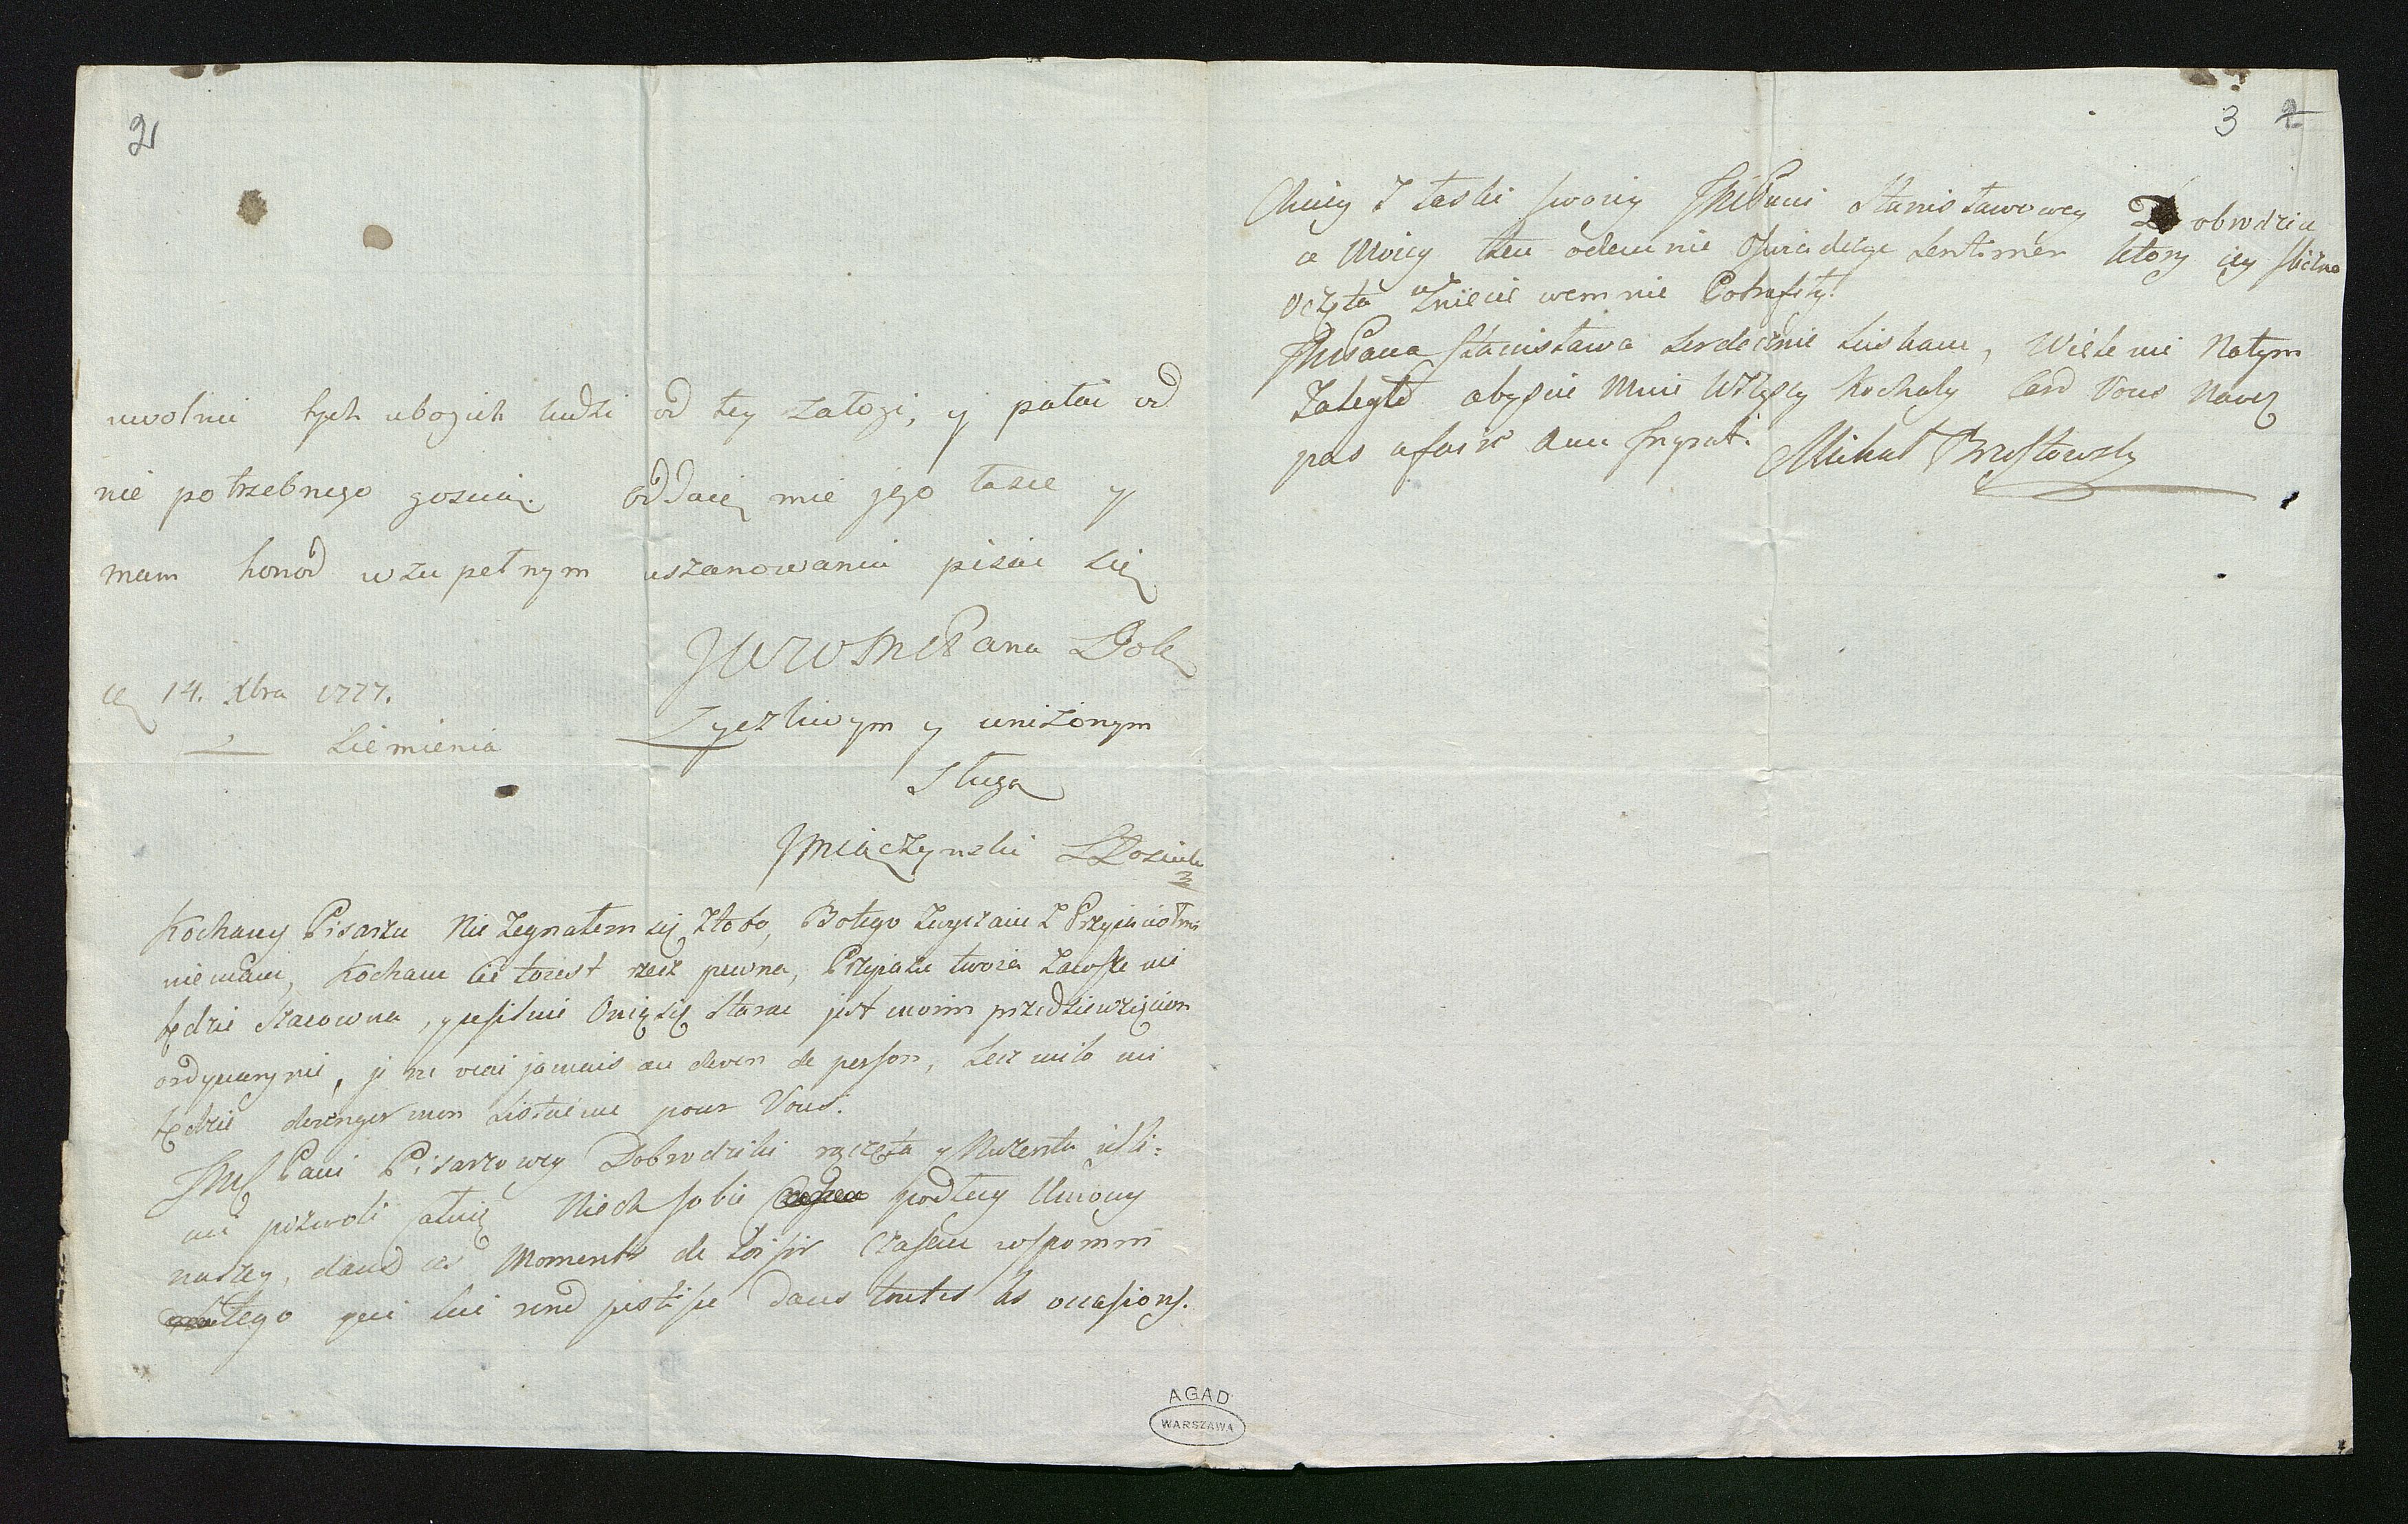 2
uwolnic tych ubogich ludzi od tey załogi, y pałac od
nie potrzebnego goscia. oddaię mie jego łasce y
mam honor w zupełnym uszanowaniu pisac się
JWWMPana Dob
życzliwym y uniżonym
Sługą
14. Xbra 1777.
Siemienia
Miączyński
Kochany Pisarzu Nie Zegnałem się Ztobą, Botego Zwyczaiu Z Przyiaciołmi
niemam, Kocham Cie toiest rzecz pewna, Przyiazn twoia zawsze mi
będzie szacowna, y usilnie Onię się starac jest moim przedsiewzięciem
ordynaryinie, je ne vai jamais au deven de person, lecz miło mi
będzie derenger mon sisteme pour Vous.
JMPani Pisarzowey Dobrodziki rączęta y Nużenta jesli
mi pozwoli całuię Niech sobie podług Umowy
naszey, dans ces Moments de Loisir Czasem wspomni
tego qui lui rend justise dans toutes les occasions.
3 2
Oney I łaski swoiey JMPani Stanisławowey Dobrodzice
a Moiey ten odemnie Oswiadczyc Sentimen ktory iey sliczne
Oczęta wzniecic wemnie Potrafiły.
JMPana Stanisława Serdecznie Sciskam, Wiele mi Natym
Zależy abyscie Mnie Wszyscy Kochaly Car Vous Navez
pas afair a un Ingrat. Michał Brzostowski
AGAD
WARSZAWA